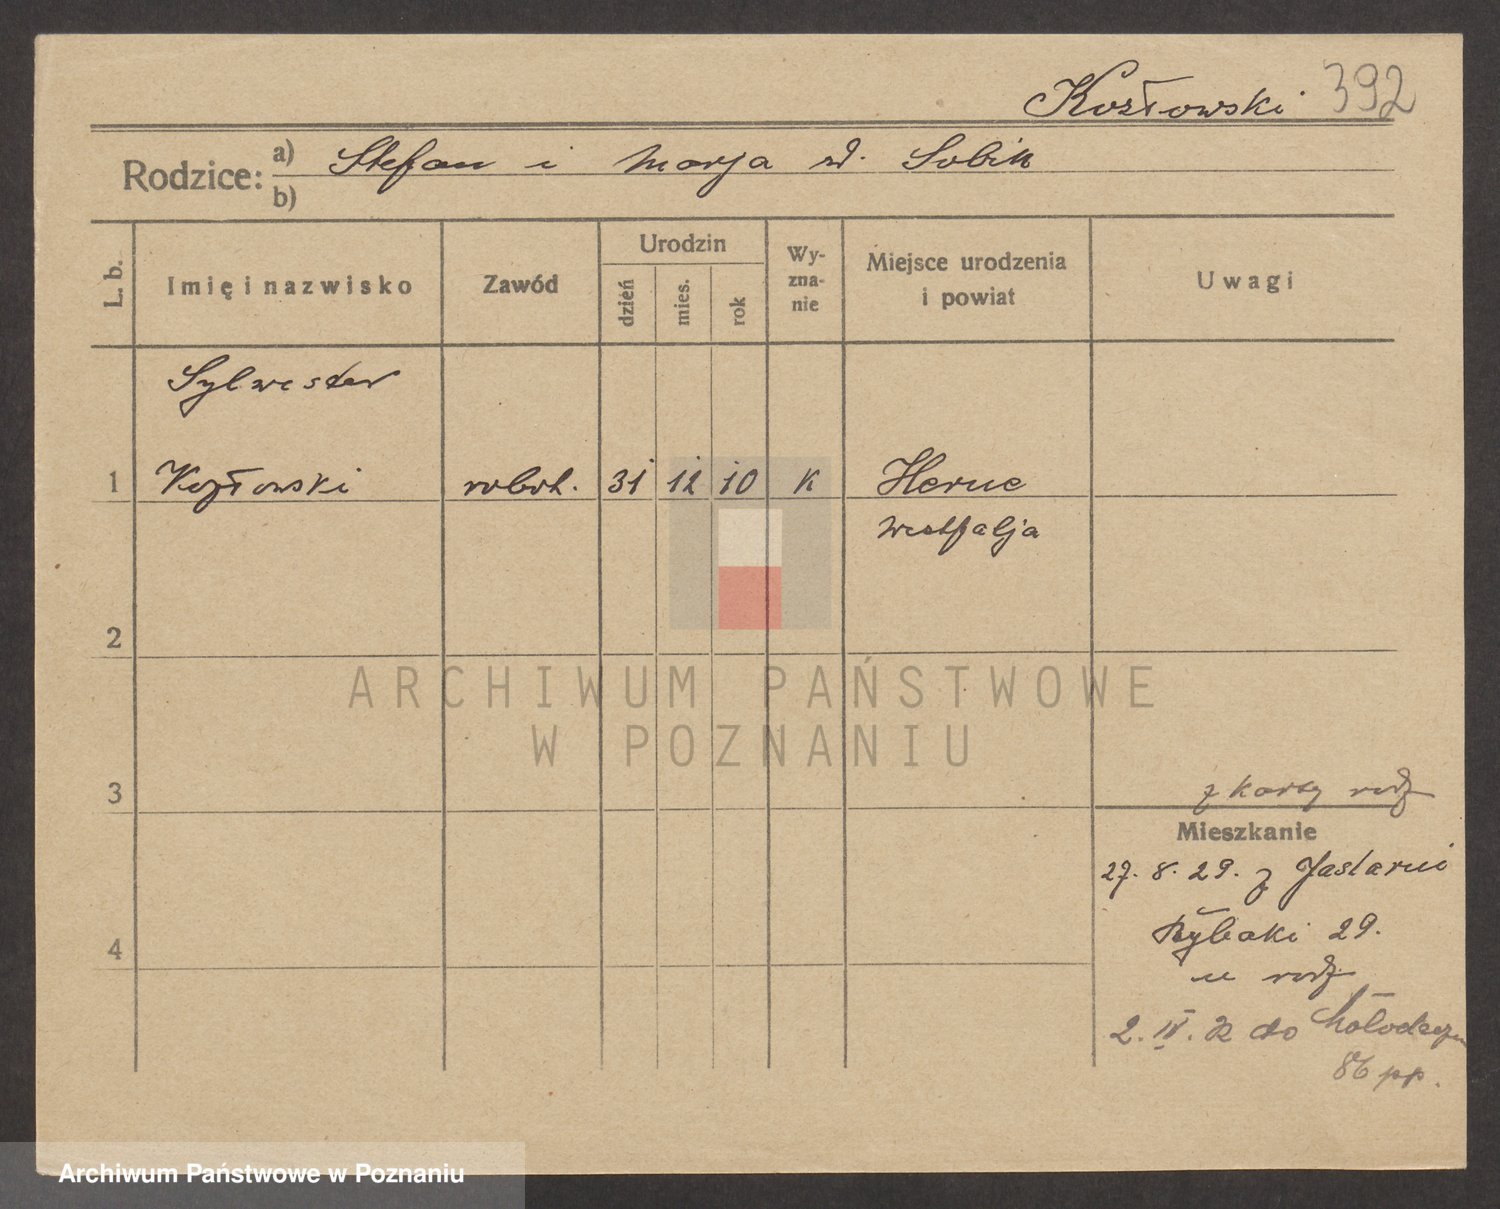 Kozłowski 392
Rodzice: a) Stefan i Marja z d. Sobik
b)
L. b.
Imię i nazwisko
Zawód
Urodzin
dzień
mies.
rok
Wy-
zna-
nie
Miejsce urodzenia
i powiat
Uwagi
Sylwester
1 Kozłowski robot. 31 12 10 k Herne
Westfalja
2
ARCHIWUM PAŃSTWOWE
W POZNANIU
3
z karty rodz
Mieszkanie
27. 8. 29. z Jastarni
Rybaki 29.
4
u rodz
2. IV. 32 do Mołodeczn
86 pp.
Archiwum Państwowe w Poznaniu